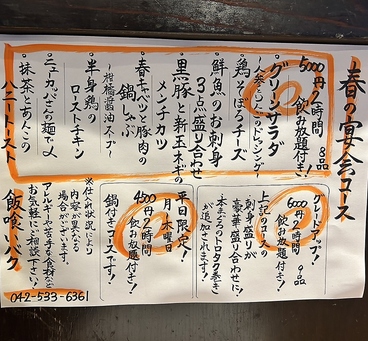 春の宴会コース
5000円 2時間 8品
飲み放題付き!
・グリーンサラダ
・鶏そぼろチーズ
・鮮魚のお刺身
3点盛り合わせ
・黒豚と新玉ネギの
メンチカツ
・春キャベツと豚肉の
鍋
〜柑橘醤油
・半身鶏の
ローストチキン
・抹茶とあんこの
ハニートースト
グレードアップ!
6000円 2時間 9品
飲み放題付き!
上記のコースの
刺身盛りが
豪華盛り合わせに!
本まぐろのトロタク巻き
が追加されます!
平日限定!
月〜木曜日
4500円 2時間
飲み放題付き!
鍋付きコースです!
※仕入れ状況により
内容が異なる
場合がございます。
アレルギーや苦手な食材など
お気軽にご相談下さい!
飯喰いバク
042-533-6361